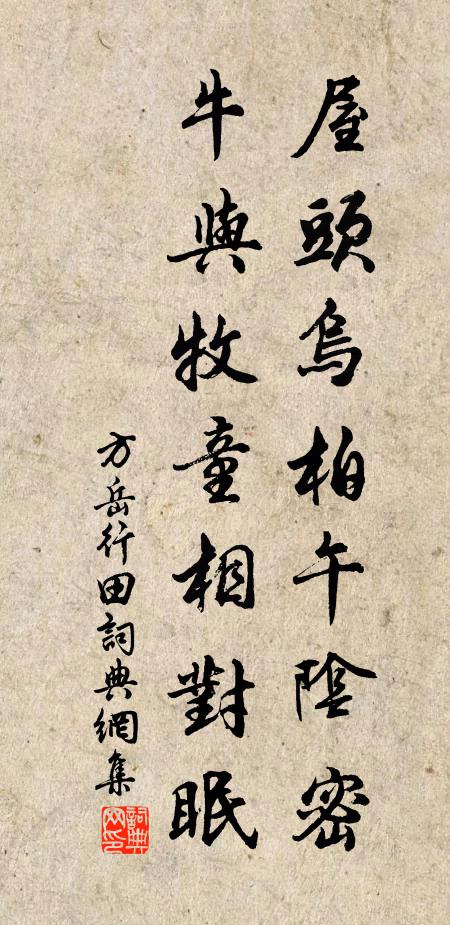 屋頭烏柏午陰密
牛與牧童相對眠
方岳行田詞典網集
詞典網印